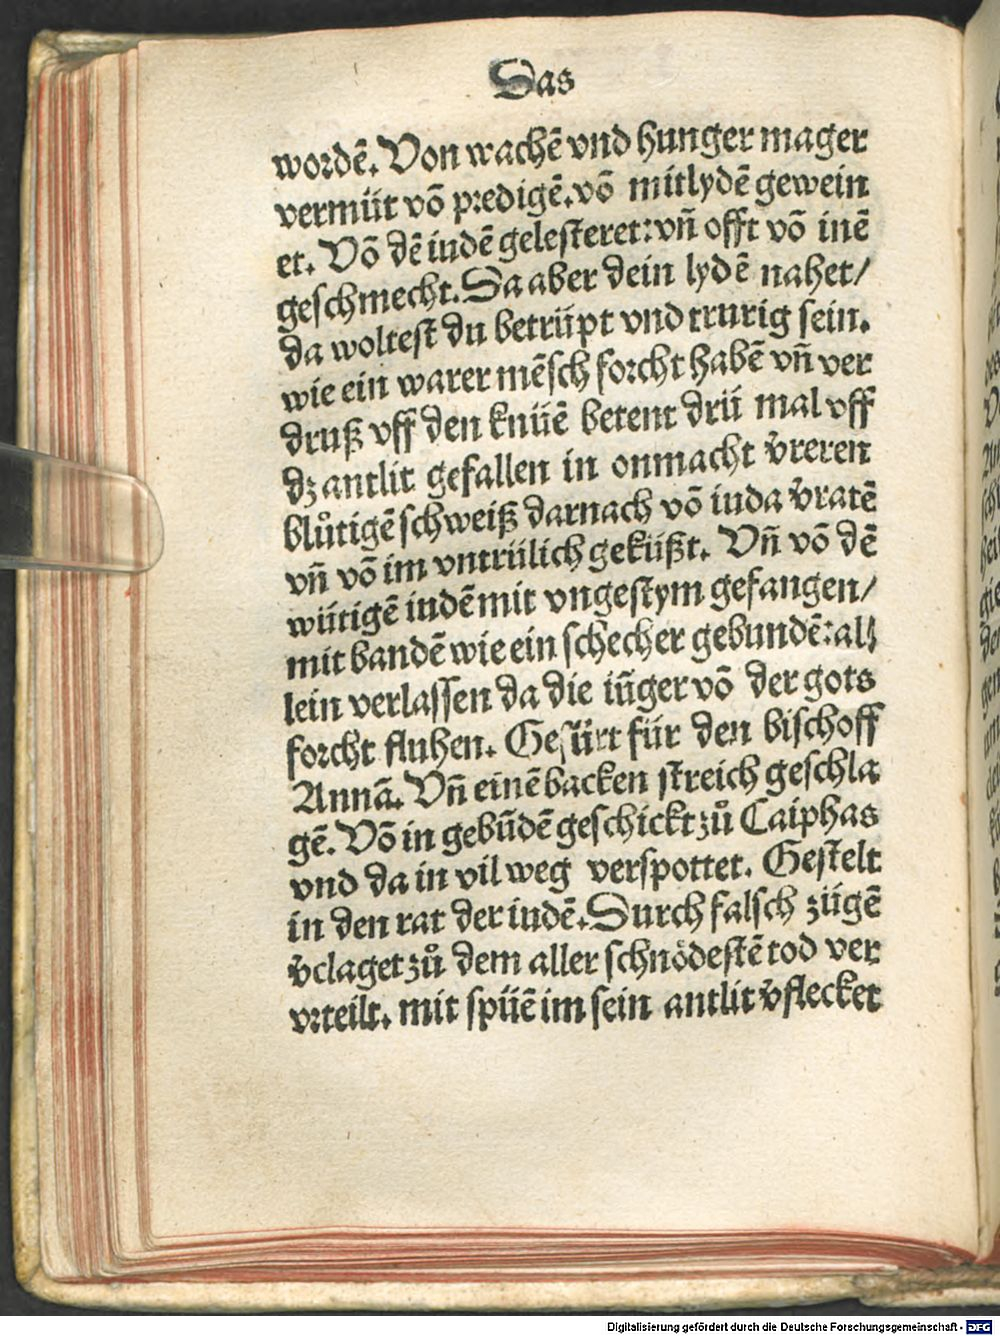 Das
wordē. Von wachē vnd hunger mager
vermüt vō predigē. vō mitlydē gewein
et. Vō dē iudē gelesteret: vñ offt vō inē
geschmecht. Da aber dein lydē nahet/
da woltest du betrüpt vnd trurig sein.
wie ein warer mēsch forcht habē vñ ver
druß vff den knüē betent drü mal vff
dz antlit gefallen in onmacht v̄reren
blůtigē schweiß darnach vō iuda v̄ratē
vñ vō im vntrülich geküßt. Vñ vō dē
wütigē iudē mit vngestym gefangen/
mit bandē wie ein schecher gebundē: al⸗
lein verlassen da die iūger vō der gots
forcht fluhen. Gefürt für den bischoff
Annā. Vñ einē backen streich geschla
gē. Vō in gebūdē geschickt zů Caiphas
vnd da in vil weg verspottet. Gestelt
in den rat der iudē. Durch falsch zügē
v̄claget zů dem aller schnödestē tod ver
vrteilt. mit spüē im sein antlit v̄flecket
Digitalisierung gefördert durch die Deutsche Forschungsgemeinschaft - DFG